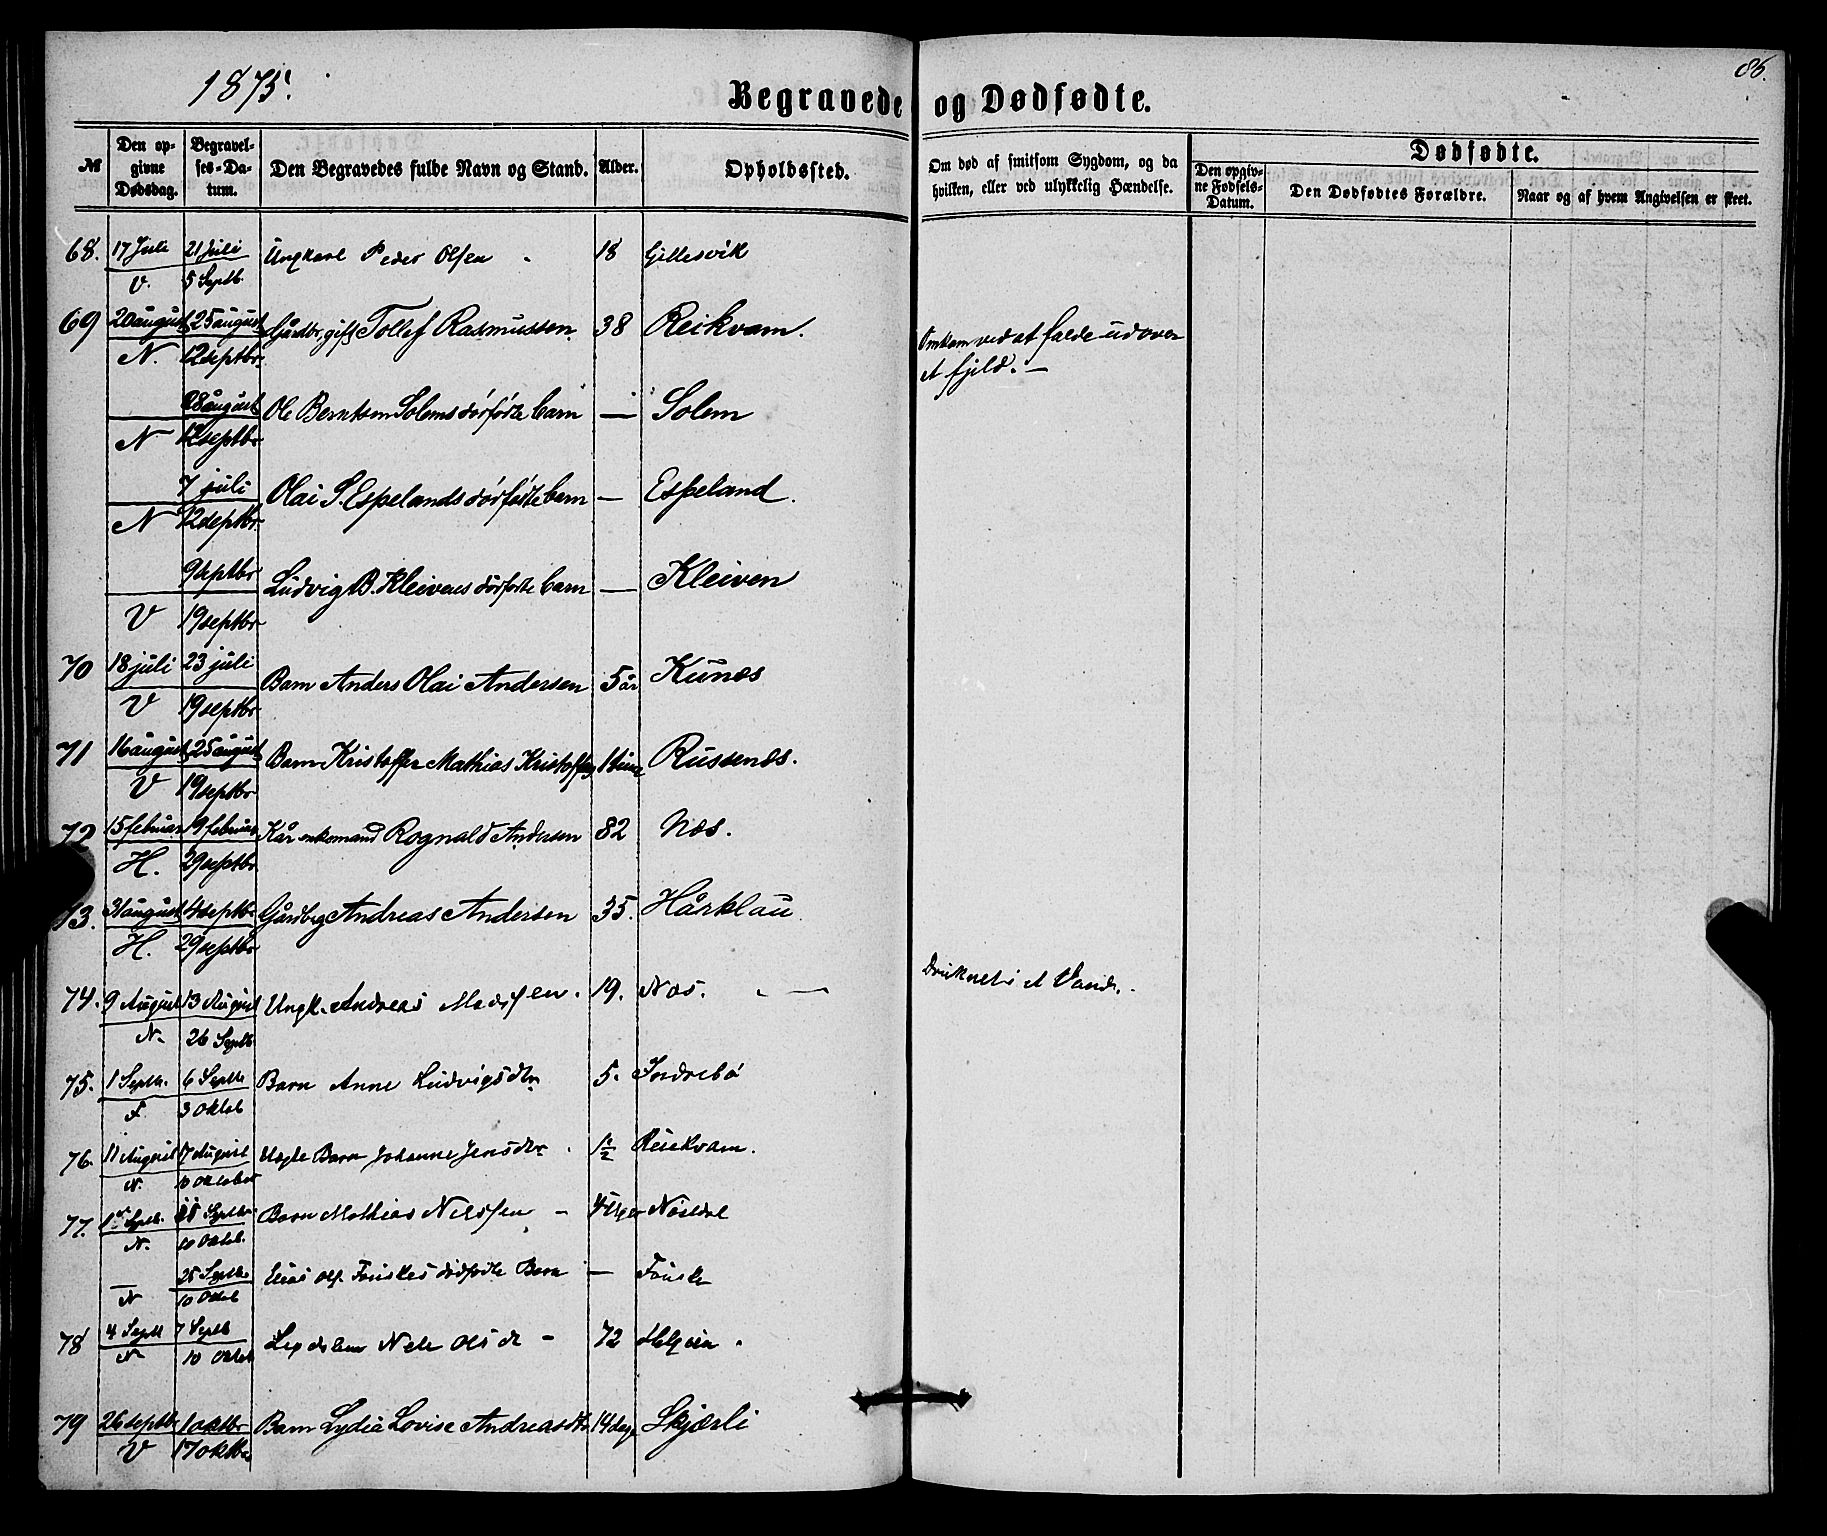 1875.
86.
Begravede og Dødfødte.
№ Den opgivne Dødsdag. Begravelses-Datum. Den Begravedes fulde Navn og Stand. Alder. Opholdssted. Om død af smitsom Sygdom, og da hvilken, eller ved ulykkelig Hændelse. Dødfødte.
Den opgivne Fødsels-Datum. Den Dødfødtes Forældre. Naar og af hvem Angivelsen er skeet.
68. 17 Juli 21 Juli Ungkarl Peder Olsen 18 Gillesvik
V. 5 Septb.
69 20 august 25 august Gårdbr. gift Tollef Rasmussen. 38 Reikvam. Omkom ved at falde ud over
N. 12 septbr. et fjeld. —
28 august Ole Berntsen Solems dødfødte barn — Solem
N 12 septbr
7 juli Olai S. Espelands dødfødte barn — Espeland.
N 12 septbr.
9 septbr Ludvig B. Kleivens dødfødte barn — Kleiven
V 19 septbr
70 18 juli 23 juli Barn Anders Olai Andersen 5 år Kunes
V 19 septbr
71 16 august 25 august Barn Kristoffer Mathias Russenes.
V 19 septbr
72 15 februar 19 februar Kår enkemand Rognald Andersen 82 Næs.
H. 29 septbr
73. 31 august 4 septbr Gårdbrg Andreas Andersen 35. Hårklau
H. 29 septbr
74. 9 August 13 August Ungk. Andreas Madssen. 19. Næs. — Druknet i et Vand.
N. 26 Septb
75. 1 Septb. 6 Septb Barn Anne Ludvigsdtr 5. Indrebö
F. 3 Oktob
76. 11 August 17 August Uægte Barn Johanne Jensdtr. 1/2 Reiekvam.
N. 10 Oktober
77. Septb. Septbr Barn Mathias Nilssen — 4 Uger Nösedal
N. 10 Oktob.
25 Septb. Elias Ols. Fouskes dødfødte Barn —
N 10 Oktob
78 4 Septb 7 Septb Nele Olsdtr — 72
N 10 Oktob
79 26 septbr 1 oktbr Barn Lydia Lovise Andreasdtr. 14 dage Skjærli
V 17 oktbr